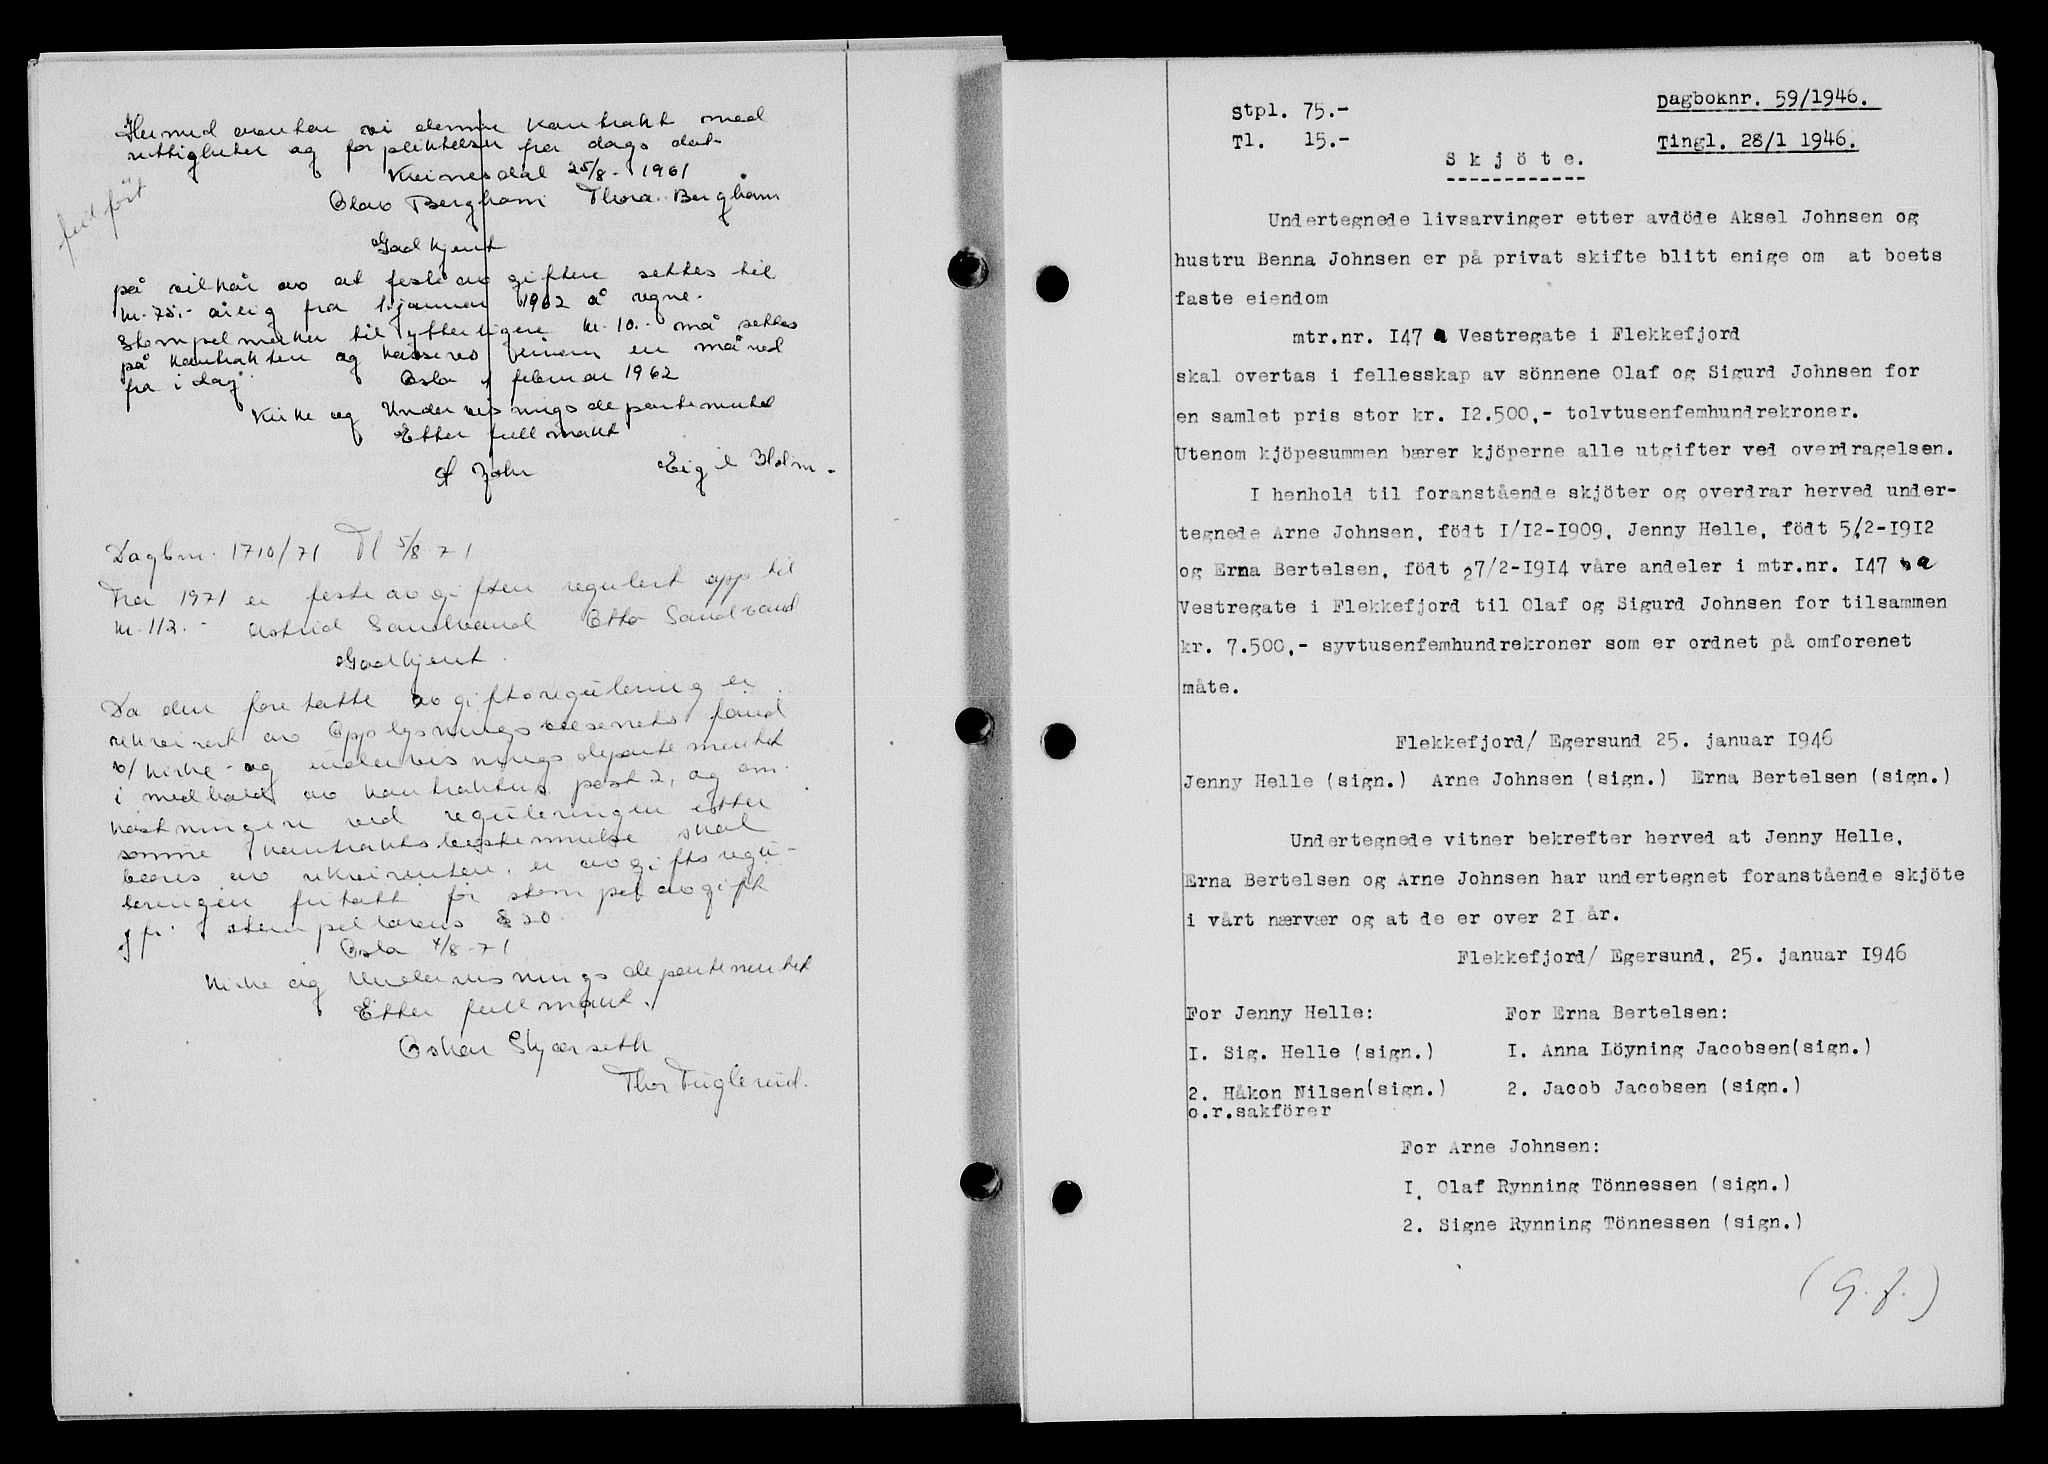 Hermed overtar vi denne kontrakt med
rettigheter og forpliktelser fra dags dato
Kvinesdal 25/8 - 1961
Olav Bergham Thora Bergham
Godkjent
på vilkår av at festeavgiften settes til
kr. 75.- årlig fra 1. januar 1962 å regne.
Stempelmerker til ytterligere kr. 10.- må settes
på kontrakten og kasseres innen en måned
fra i dag.
Oslo februar 1962
Kirke og Undervisningsdepartementet
Etter fullmakt
Eigil Holm.
fullført
Dagbnr. 1710/71 Tl 5/8 71
Fra 1971 er festeavgiften regulert opp til
kr. 112.- Astrid Sandvand Otto Sandvand
Godkjent.
Da den foretatte avgiftsregulering er
rekvirert av Opplysningsvesenets fond
v/ Kirke- og undervisningsdepartementet
i medhold av kontraktens post 2, og om-
kostningene ved reguleringen etter
samme kontraktsbestemmelse skal
bæres av rekvirenten, er avgiftsregu-
leringen fritatt for stempelavgift
jfr. stempellovens § 20.
Oslo 4/8-71
Kirke og Undervisningsdepartementet
Etter fullmakt.
Oskar Skjærseth
Thor Fuglerud.
Stpl. 75.-
Tl. 15.-
Dagboknr. 59/1946.
Tingl. 28/1 1946.
S k j ö t e.
Undertegnede livsarvinger etter avdöde Aksel Johnsen og
hustru Benna Johnsen er på privat skifte blitt enige om at boets
faste eiendom
mtr.nr. I47 a Vestregate i Flekkefjord
skal overtas i fellesskap av sönnene Olaf og Sigurd Johnsen for
en samlet pris stor kr. I2.500,- tolvtusenfemhundrekroner.
Utenom kjöpesummen bærer kjöperne alle utgifter ved overdragelsen.
I henhold til foranstående skjöter og overdrar herved under-
tegnede Arne Johnsen, födt I/I2-I909, Jenny Helle, födt 5/2-I9I2
og Erna Bertelsen, födt 27/2-I9I4 våre andeler i mtr.nr. I47 a
Vestregate i Flekkefjord til Olaf og Sigurd Johnsen for tilsammen
kr. 7.500,- syvtusenfemhundrekroner som er ordnet på omforenet
måte.
Flekkefjord/ Egersund 25. januar I946
Jenny Helle (sign.) Arne Johnsen (sign.) Erna Bertelsen (sign.)
Undertegnede vitner bekrefter herved at Jenny Helle,
Erna Bertelsen og Arne Johnsen har undertegnet foranstående skjöte
i vårt nærvær og at de er over 2I år.
Flekkefjord/ Egersund, 25. januar I946
For Jenny Helle:
I. Sig. Helle (sign.)
2. Håkon Nilsen(sign.)
o.r.sakförer
For Erna Bertelsen:
I. Anna Löyning Jacobsen(sign.)
2. Jacob Jacobsen (sign.)
For Arne Johnsen:
I. Olaf Rynning Tönnessen (sign.)
2. Signe Rynning Tönnessen (sign.)